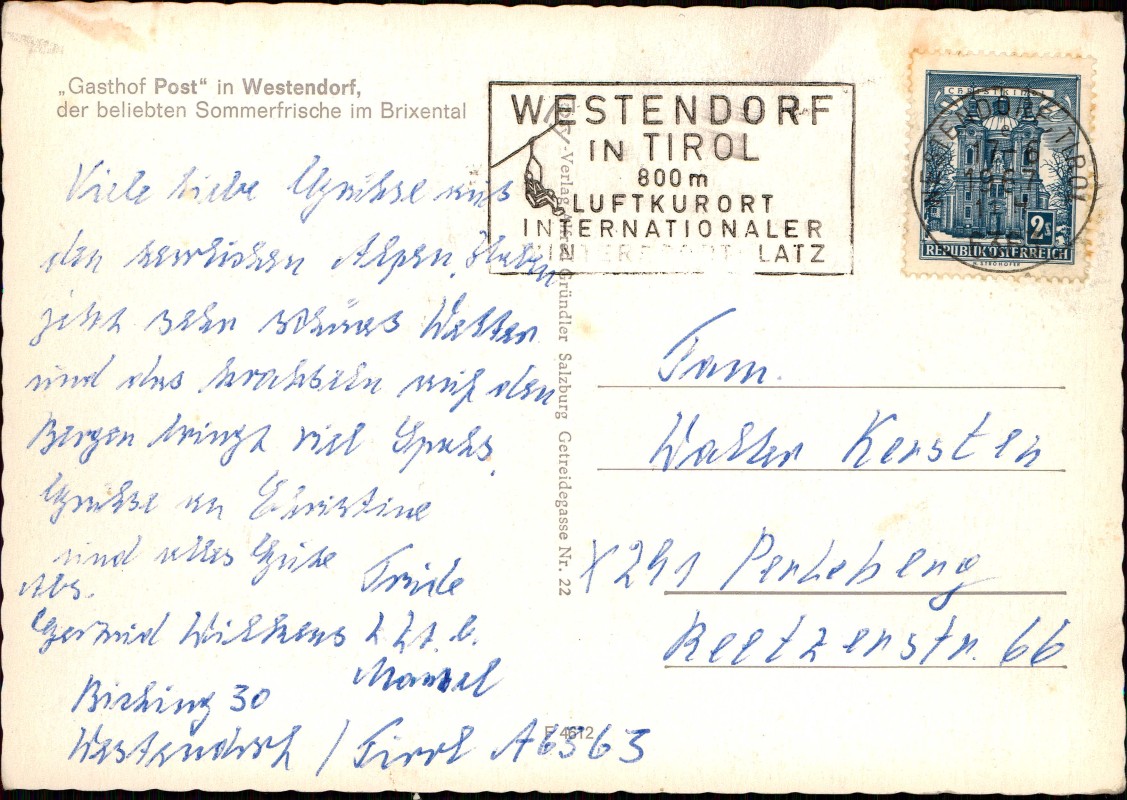 „Gasthof Post“ in Westendorf,
der beliebten Sommerfrische im Brixental
WESTENDORF
IN TIROL
800m
LUFTKURORT
INTERNATIONALER
WINTERSPORTPLATZ
CHRISTKINDL
2s
REPUBLIK ÖSTERREICH
WESTENDORF, TIROL
17-6
1967
Viele liebe Grühse aus
den herrlichen Alpen. Haben
jetzt sehr schönes Wetter
und das krabbeln auf den
Bergen bringt viel Spahs.
Grühse an Christine
und alles Gute
Abs.
Gertrud Wilkens z. Zt. b.
Bichling 30
Westendorf / Tirol A6363
Fam.
Walter Kersten
X291 Perleberg
Reetzenstr. 66
Verlag Gründler Salzburg Getreidegasse Nr. 22
F 4612